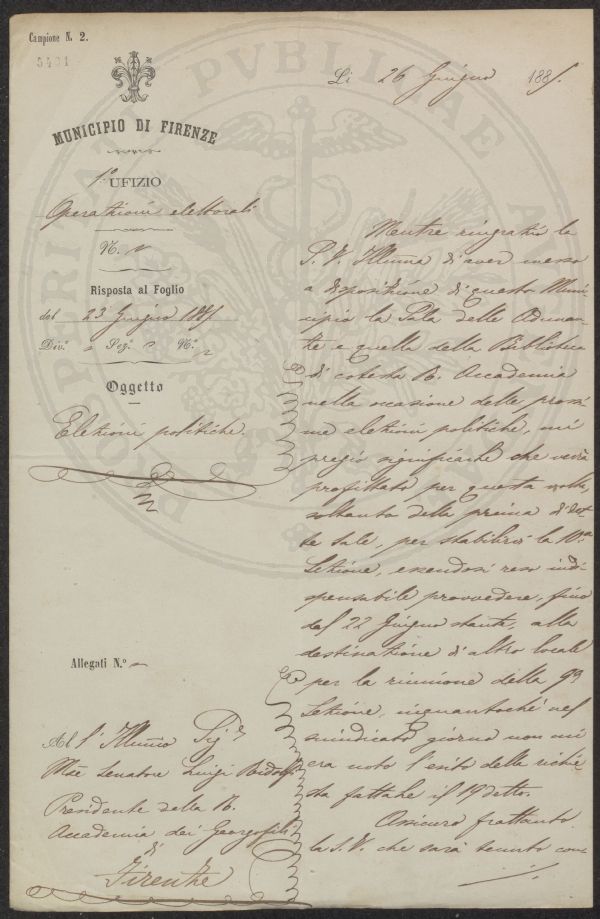 Campione N. 2.
5431
MUNICIPIO DI FIRENZE
1° UFIZIO
Operazioni elettorali
N.
Risposta al Foglio
del 23 Giugno 1881
Div.e Sez.e N.o
Oggetto
Elezioni politiche.
Allegati N.o
All' Illmo Sig.r
Mse Senatore Luigi Ridolfi
Presidente della R.
Accademia dei Georgofili
di
Firenze
Li 26 Giugno 1881.
Mentre ringrazio la
S. V. Illma di aver messo
a disposizione di questo Muni-
cipio la Sala delle Adunan-
ze e quella della Biblioteca
di cotesta R. Accademia
nella occasione delle prossi-
me elezioni politiche, mi
pregio significarle che verrà
profittato per questa volta
soltanto della prima di det-
te sale, per stabilirvi la 10.a
Sezione, essendosi reso indi-
spensabile provvedere, fino
dal 22 Giugno stante, alla
destinazione di altro locale
per la riunione della 9.a
Sezione, inquantoché nel
suindicato giorno non mi
era noto l'esito della richie-
sta fattale il 19 detto.
Assicuro frattanto
la S. V. che sarà tenuto con-